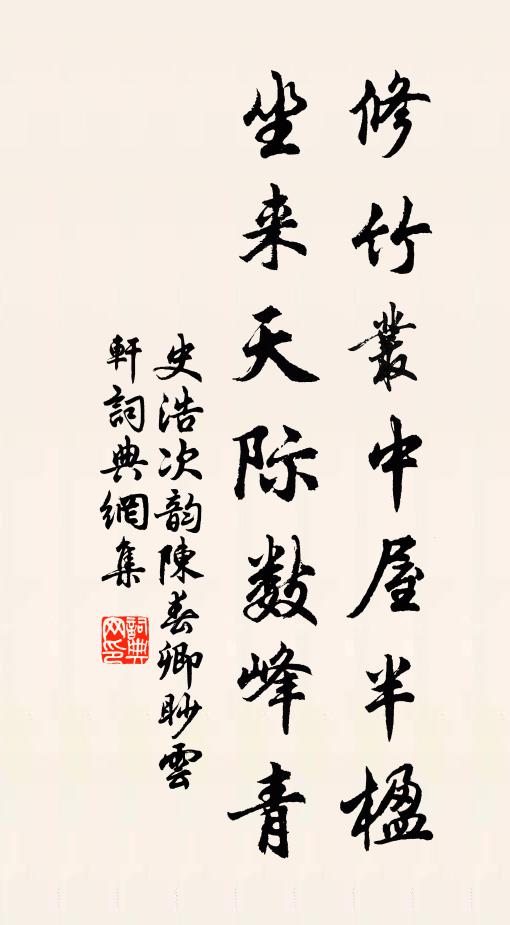 修竹叢中屋半楹
坐来天际数峰青
史浩次韵陳春卿眇雲
軒詞典網集
詞典网印